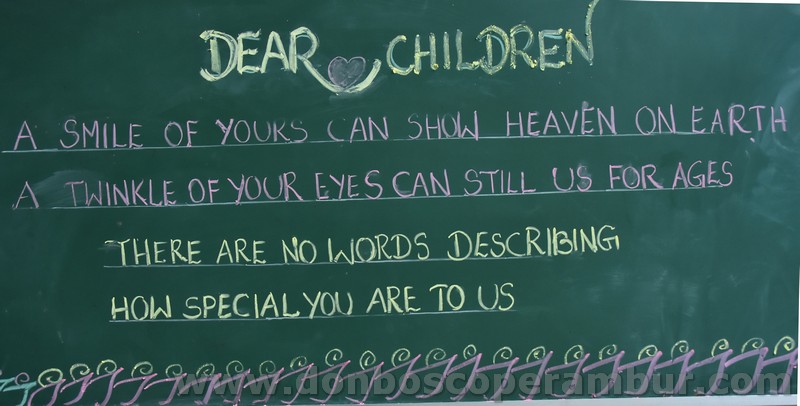 DEAR CHILDREN
A SMILE OF YOURS CAN SHOW HEAVEN ON EARTH
A TWINKLE OF YOUR EYES CAN STILL US FOR AGES
THERE ARE NO WORDS DESCRIBING
HOW SPECIAL YOU ARE TO US
www.donboscoperambur.com